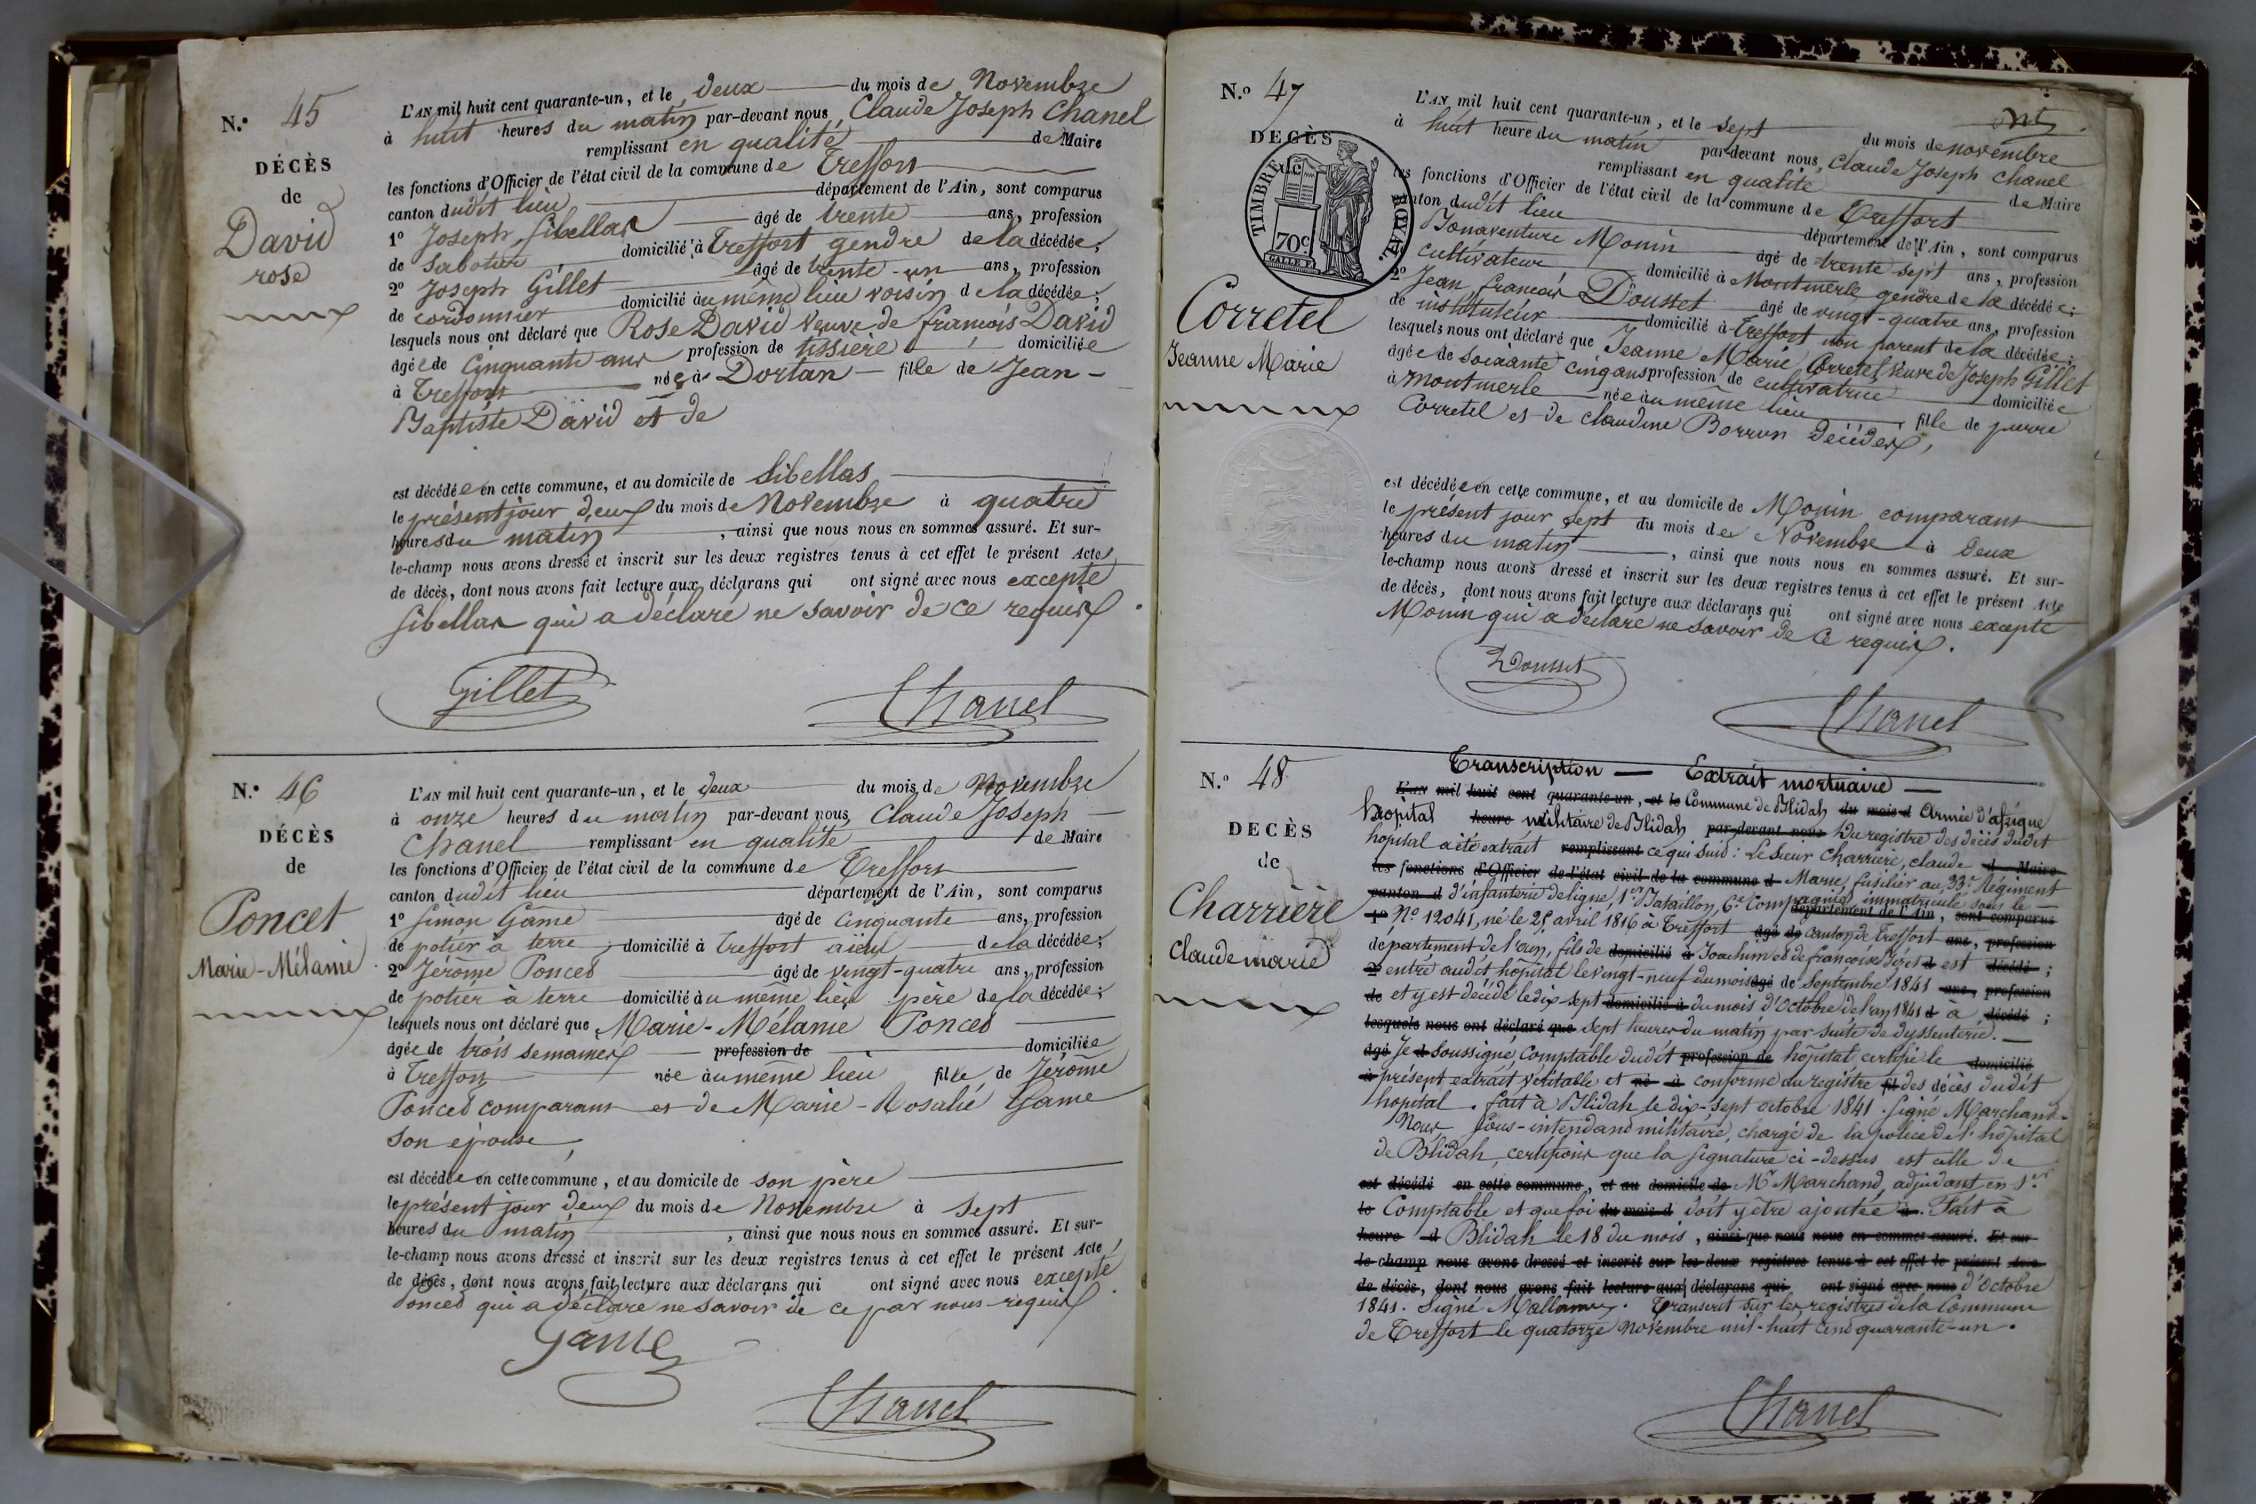 N.° 45
DÉCÈS
de
David
rose
L'AN mil huit cent quarante-un, et le deux du mois de Novembre
à huit heures du matin par-devant nous Claude Joseph Chanel
remplissant en qualité de Maire
les fonctions d'Officier de l'état civil de la commune de Treffort
canton dudit lieu département de l'Ain, sont comparus
1° Joseph Sibellas âgé de trente ans, profession
de Sabotier domicilié à Treffort gendre de la décédée;
2° Joseph Gillet âgé de trente-un ans, profession
de cordonnier domicilié au même lieu voisin de la décédée;
lesquels nous ont déclaré que Rose David Veuve de françois David
âgée de Cinquante ans profession de tissière domiciliée
à Treffort née à Dortan fille de Jean-
Baptiste David et de
est décédée en cette commune, et au domicile de Sibellas
le présent jour deux du mois de Novembre à quatre
heures du matin, ainsi que nous nous en sommes assuré. Et sur-
le-champ nous avons dressé et inscrit sur les deux registres tenus à cet effet le présent Acte
de décès, dont nous avons fait lecture aux déclarans qui ont signé avec nous excepté
Sibellas qui a déclaré ne savoir de ce requis.
Gillet
Chanel
N.° 46
DÉCÈS
de
Poncet
Marie-Mélanie
L'AN mil huit cent quarante-un, et le deux du mois de Novembre
à onze heures du matin par-devant nous Claude Joseph
Chanel remplissant en qualité de Maire
les fonctions d'Officier de l'état civil de la commune de Treffort
canton dudit lieu département de l'Ain, sont comparus
1° Simon Game âgé de Cinquante ans, profession
de potier à terre domicilié à Treffort aïeul de la décédée;
2° Jérôme Poncet âgé de vingt-quatre ans, profession
de potier à terre domicilié au même lieu père de la décédée;
lesquels nous ont déclaré que Marie-Mélanie Poncet
âgée de trois semaines profession de domiciliée
à Treffort née au même lieu fille de Jérôme
Poncet comparant et de Marie-Rosalie Game
son épouse,
est décédée en cette commune, et au domicile de son père
le présent jour deux du mois de Novembre à sept
heures du matin, ainsi que nous nous en sommes assuré. Et sur-
le-champ nous avons dressé et inscrit sur les deux registres tenus à cet effet le présent Acte,
de décès, dont nous avons fait lecture aux déclarans qui ont signé avec nous excepté
Poncet qui a déclaré ne savoir de ce par nous requis.
Game
Chanel
N.° 47
DECÈS
de
TIMBRE ROYAL
70c
Corretel
Jeanne Marie
L'AN mil huit cent quarante-un, et le sept du mois de novembre
à huit heure du matin par-devant nous, Claude Joseph Chanel
remplissant en qualité de Maire
les fonctions d'Officier de l'état civil de la commune de Treffort
canton dudit lieu département de l'Ain, sont comparus
Bonaventure Monin âgé de trente sept ans, profession
cultivateur domicilié à Montmerle gendre de la décédée;
2° Jean françois Dousset âgé de vingt-quatre ans, profession
de instituteur domicilié à Treffort non parent de la décédée;
lesquels nous ont déclaré que Jeanne Marie Corretel Veuve de Joseph Gillet
âgée de soixante cinq ans profession de cultivatrice domiciliée
à Montmerle née au même lieu fille de pierre
Corretel et de claudine Borron décédés,
est décédée en cette commune, et au domicile de Monin comparant
le présent jour sept du mois de Novembre à deux
heures du matin, ainsi que nous nous en sommes assuré. Et sur-
le-champ nous avons dressé et inscrit sur les deux registres tenus à cet effet le présent Acte
de décès, dont nous avons fait lecture aux déclarans qui ont signé avec nous excepté
Monin qui a déclaré ne savoir de ce requis.
Dousset
Chanel
N.° 48
DECÈS
de
Charrière
Claude marie
Transcription — Extrait mortuaire —
L'AN mil huit cent quarante-un, et le Commune de Blidah du mois d Armée d'afrique
hopital heure militaire de Blidah par-devant nous Du registre des décès dudit
hopital a été extrait remplissant ce qui suit: Le Sieur Charriere, claude d Maire
les fonctions d'Officier de l'état civil de la commune d Marie, fusilier au 33e Régiment
canton d d'infanterie de ligne, 1er Bataillon, 6e Compagnie immatriculé sous le département de l'Ain, sont comparus
1° N° 12041, né le 25 avril 1816 à Treffort âgé de canton de Treffort ans, profession
département de l'ain, fils de domicilié à Joachim et de françoise d est décédé;
2° entré audit hôpital le vingt-neuf du mois âgé de Septembre 1841 ans, profession
de et y est décédé le dix sept domicilié à du mois d'Octobre de l'an 1841 d à décédé;
lesquels nous ont déclaré que sept heures du matin par suite de dyssenterie.
âgé Je d soussigné, Comptable dudit profession de hôpital certifie le domicilié
à présent extrait véritable et né à conforme au registre fil des décès dudit
hopital. fait à Blidah le dix-sept octobre 1841. Signé Marchand.
Nous Sous-intendant militaire, chargé de la police de l'hôpital
de Blidah, certifions que la signature ci-dessus est celle de
est décédé en cette commune, et au domicile de Mr Marchand, adjudant en 1er
le Comptable et que foi du mois d doit y être ajoutée à. Fait à
heure d Blidah le 18 du mois, ainsi que nous nous en sommes assuré. Et sur-
le-champ nous avons dressé et inscrit sur les deux registres tenus à cet effet le présent Acte
de décès, dont nous avons fait lecture aux déclarans qui ont signé avec nous d'Octobre
1841. Signé Transcrit sur les registres de la Commune
de Treffort le quatorze novembre mil-huit cent quarante-un.
Chanel